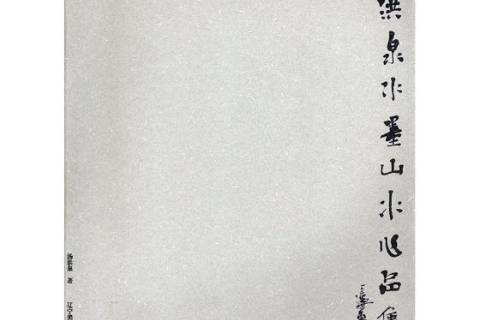 洪泉水墨山水小品集
洪泉 著
辽宁美